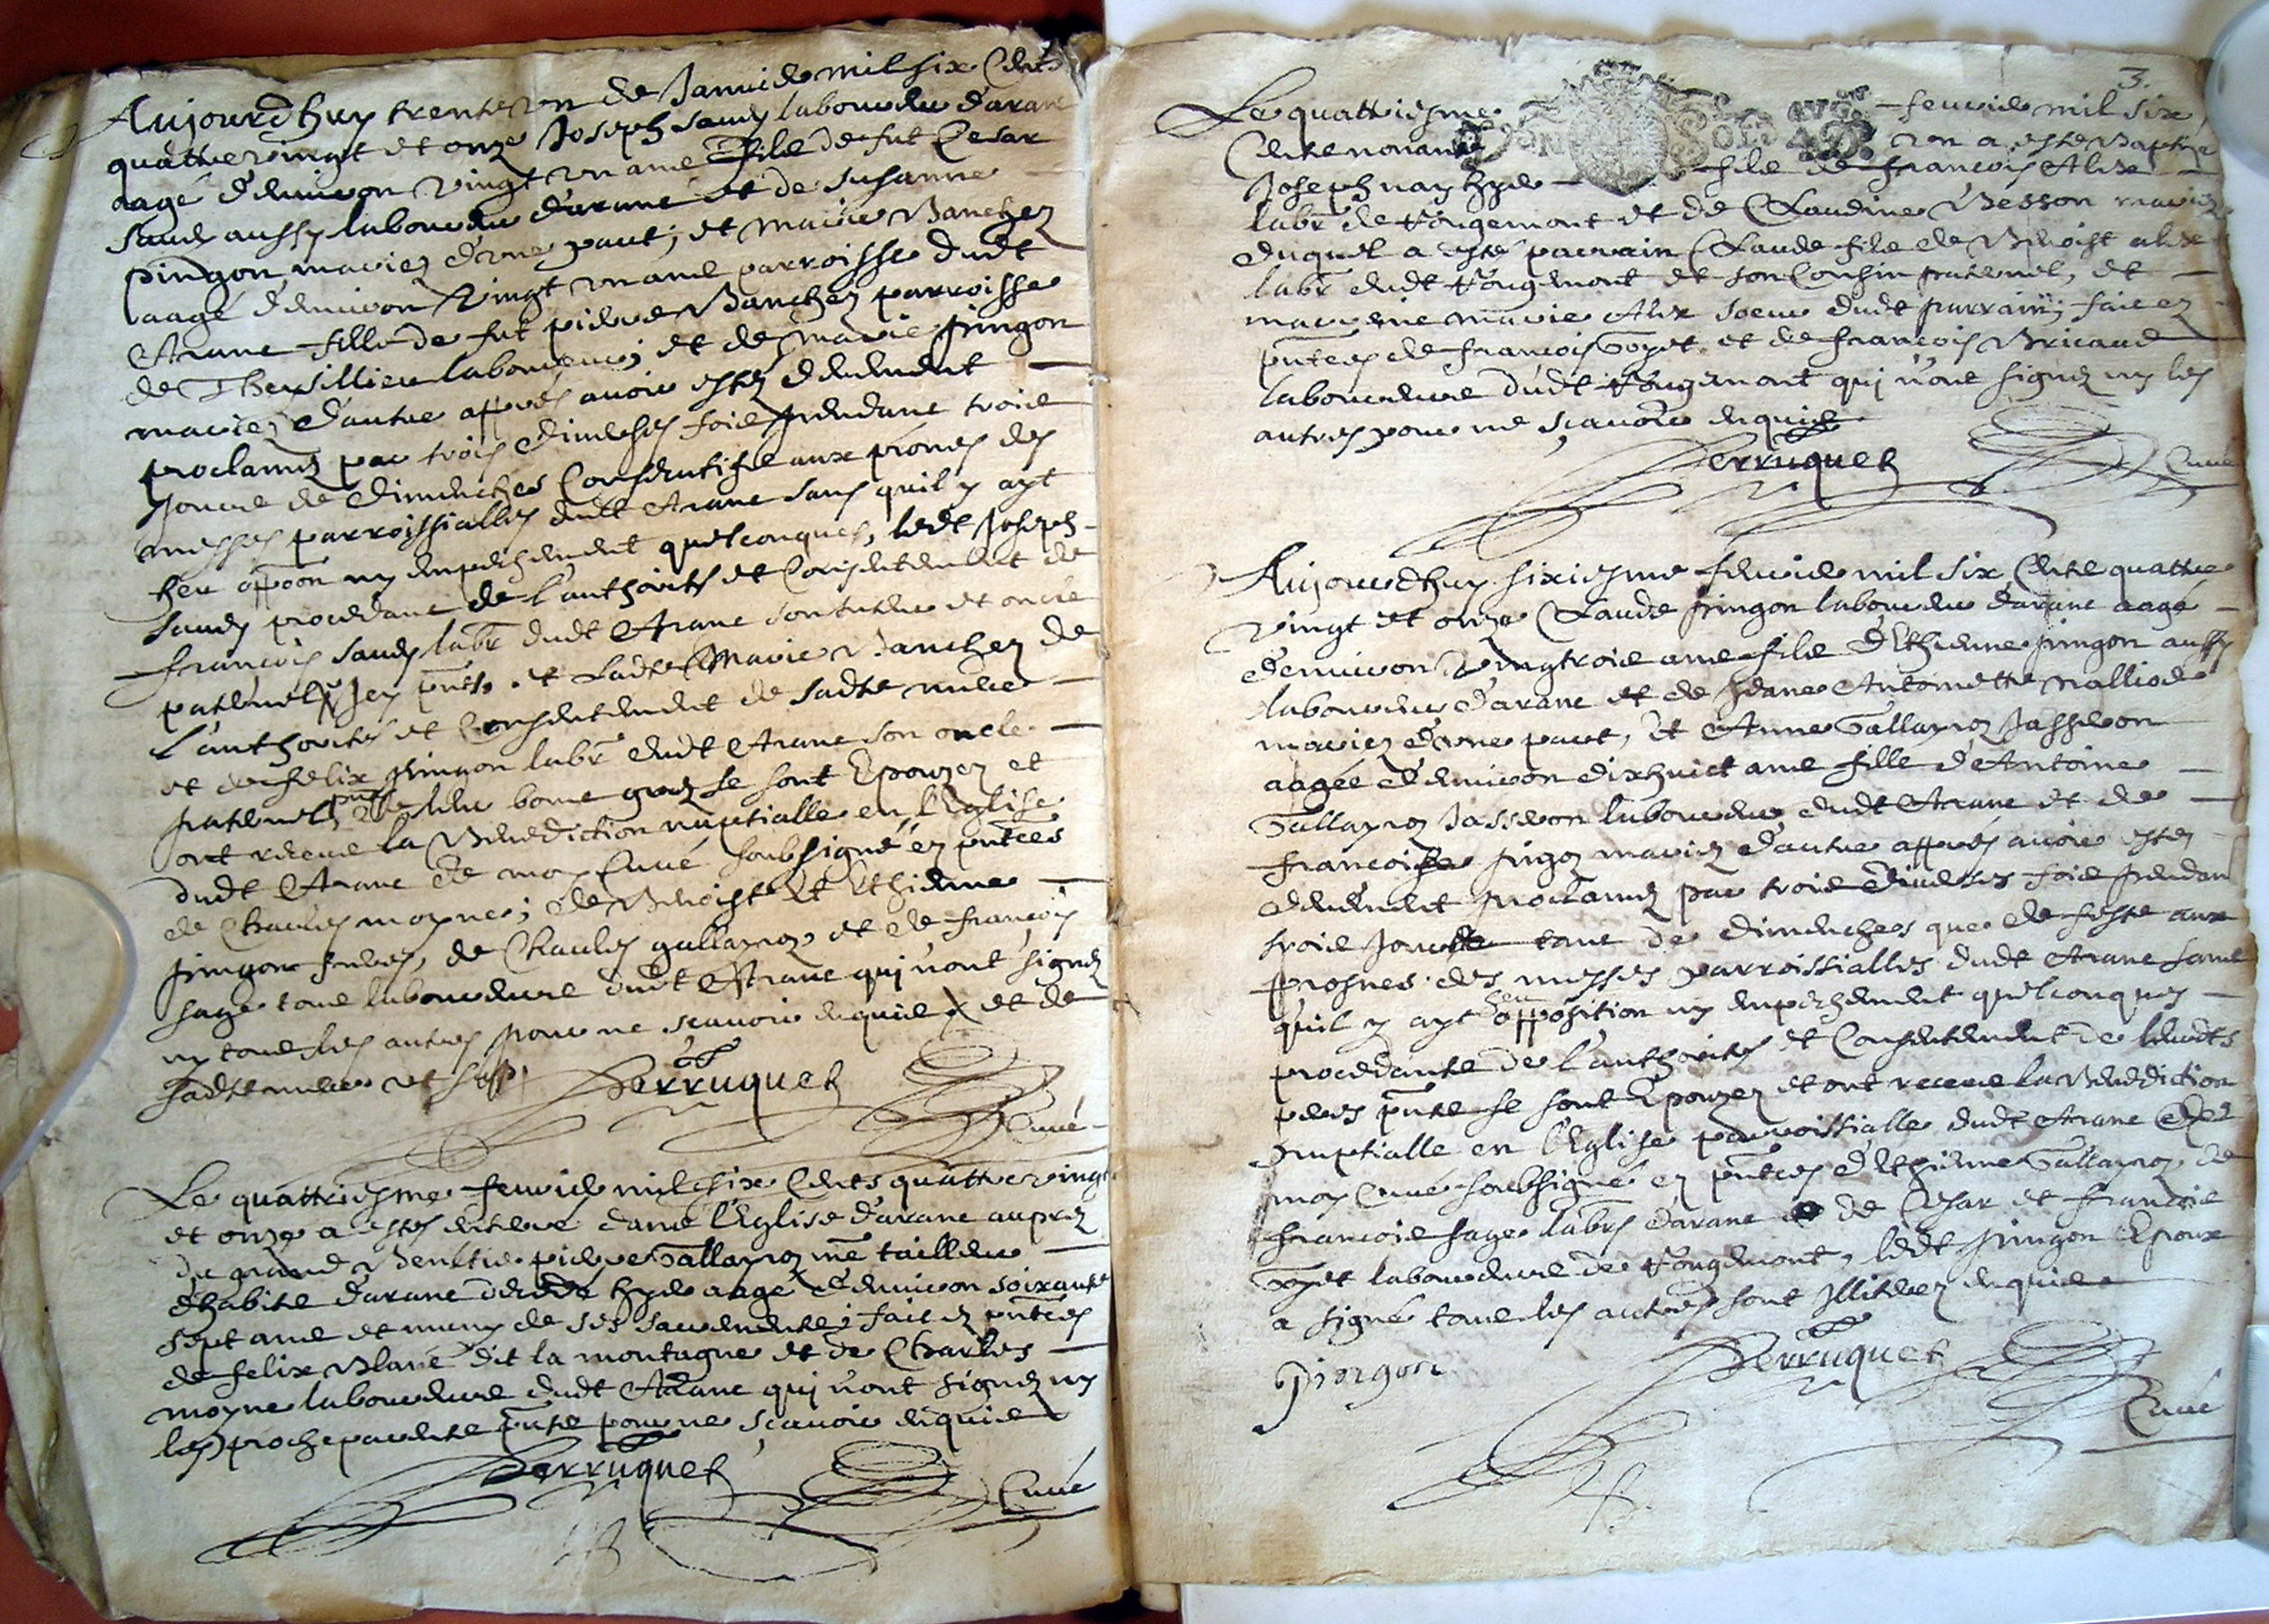 Aujourdhuy trente un de Janvier mil six Cents
quattre vingt et onze Joseph Savey laboureur darane
aagé denviron vingt un ans fils de fut Cesar
Savey aussy laboureur darane et de Susanne
pingon mariez dune part; et Marie Banchez
aagé denviron vingt un ans parroisse dudt
Arane fille de fut pierre Banchez parroisse
de laboureur; et de Marie pingon
mariez dautre apprés avoir estez deument
proclamez par trois diverses fois pendant trois
jours de dimenches Consecutifs aux prones des
messes parroissialles dudt Arane sans quil y ayt
heu oppoon ny empechement quelconques, ledt Joseph
Savey procedant de l'authorité et Consentement de
francois Savey labr dudt Arane son tuteur et oncle
paternel pnts. et Ladte Marie Banchez de
l'authorité et Consentement de sadte mere
et de felix pingon labr dudt Arane son oncle
paternel leur bons grez se sont Epouzez et
ont receue la Benediction nuptialle en l'Eglise
dudt Arane de moy Curé soubsigné ez pntces
de Charles moyne; de Benoist Et Ethienne
pingon freres, de Charles gallayroz et de francois
sage tous laboureurs dudt Arane qui n'ont signez
ny tous les autres pour ne scavoir enquis et de
sadte mere et
Perruquet
Curé
Le quattriesme fevrier mil six Cents quattre vingt
et onze a estez enterré dans l'Eglise darane auprez
du grand Benitier pierre Gallayroz me tailleur
dhabits darane decedé hyer aagé denviron soixante
sept ans et muny de ses sacrements; fait ez pntces
de felix Blanc dit la montagne et de Charles
moyne laboureurs dudt Arane qui n'ont signez ny
les proche parents pnts pour ne scavoir enquis
Perruquet
Curé
3.
Le quattriesme fevrier mil six
Cents nonante un a esté Baptizé
Joseph nay hyer fils de francois Alix
labr de Rougemont et de Claudine Besson mariez
duquel a esté parrain Claude fils de Benoist alix
labr dudt Rougemont et son Cousin paternel, et
marreine Marie Alix soeur dudt parrain; fait ez
pntces de francois Goyet et de francois Bricaud
laboureurs dudt Rougemont qui n'ont signez ny les
autres pour ne scavoir enquis
Perruquet
Curé
Aujourdhuy sixiesme fevrier mil six Cents quattre
vingt et onze Claude pingon laboureur darane aagé
denviron vingtrois ans fils d'Ethienne pingon aussy
laboureur darane et de Jeane Antoinette
mariez dune part, Et Anne Gallayroz Jasseron
aagée denviron dixhuict ans fille d'Antoine
Gallayroz Jasseron laboureur dudt Arane et de
francoise pingoz mariez dautre apprés avoir estez
deument proclamez par trois diverses fois pendant
trois jours tant de dimenches que de feste aux
prosnes des messes parroissialles dudt Arane sans
quil y ayt heu opposition ny empechement quelconques
procedants de l'authorité et Consentement de leurdts
peres pnts se sont Epouzez et ont receue la Benediction
nuptialle en l'Eglise parroissialle dudt Arane de
moy Curé soubsigné ez pntces d'Ethienne Gallayroz de
francois sage labrs darane de Cesar et francois
Goyet laboureurs de Rougemont, ledt pingon Epoux
a signé tous les autres sont Illiterez enquis
Pingon
Perruquet
Curé